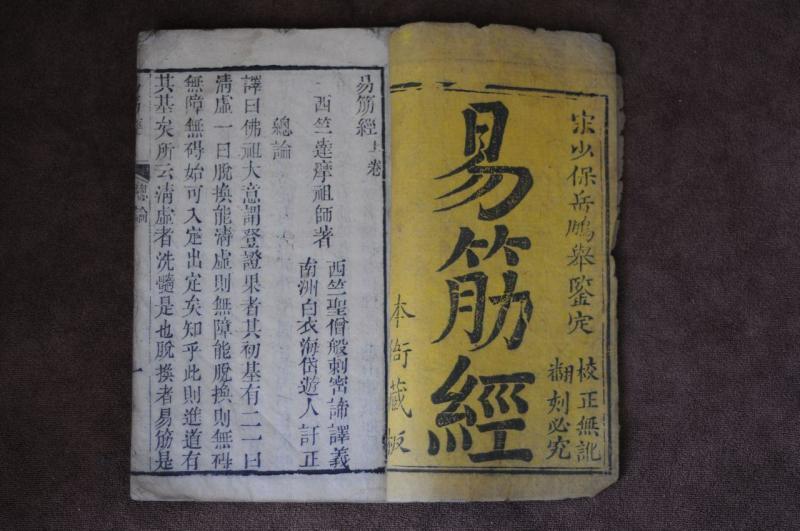 宋少保岳鵬舉鑒定
校正無訛
翻刻必究
易筋經
本衙藏板
易筋經上卷
西竺達摩祖師著
西竺聖僧般剌密諦譯義
南洲白衣海岱遊人訂正
總論
譯曰佛祖大意謂登證果者其初基有二一曰
清虛一曰脫換能清虛則無障能脫換則無碍
無障無碍始可入定出定矣知乎此則進道有
其基矣所云清虛者洗髓是也脫換者易筋是
筋經 總論 一